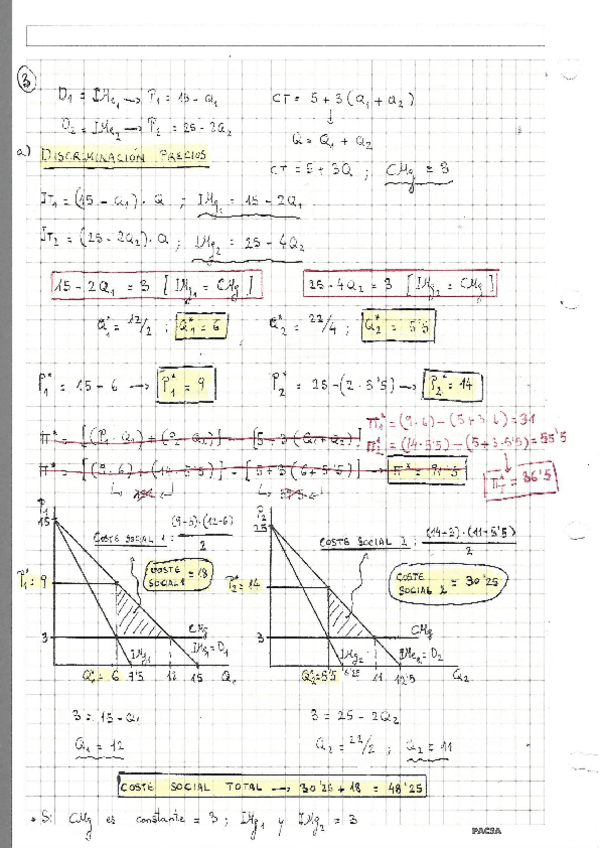 3
D₁ = IMe₁ → P₁ = 15 - Q₁
CT = 5 + 3(Q₁ + Q₂)
↓
D₂ = IMe₂ → P₂ = 25 - 2Q₂
Q = Q₁ + Q₂
a) DISCRIMINACIÓN PRECIOS
CT = 5 + 3Q ; CMg = 3
IT₁ = (15 - Q₁) · Q ; IMg₁ = 15 - 2Q₁
IT₂ = (25 - 2Q₂) · Q ; IMg₂ = 25 - 4Q₂
15 - 2Q₁ = 3 [IMg₁ = CMg]
25 - 4Q₂ = 3 [IMg₂ = CMg]
Q₁* = 12/2 ; Q₁* = 6
Q₂* = 22/4 ; Q₂* = 5'5
P₁* = 15 - 6 → P₁* = 9
P₂* = 25 - (2 · 5'5) → P₂* = 14
π₁* = (9 · 6) - (5 + 3 · 6) = 31
π* = [(P₁ · Q₁) + (P₂ · Q₂)] - [5 + 3(Q₁ + Q₂)]
π₂* = (14 · 5'5) - (5 + 3 · 5'5) = 55'5
π* = [(9 · 6) + (14 · 5'5)] - [5 + 3(6 + 5'5)] → π* = 91'5
= 86'5
P₁
15
COSTE SOCIAL 1 : (9-3)·(12-6)
2
COSTE SOCIAL 1 = 18
P₁* = 9
3
CMg
IMe₁ = D₁
IMg₁
Q₁* = 6 7'5 12 15 Q₁
P₂
25
COSTE SOCIAL 2 : (14-3)·(11-5'5)
2
COSTE SOCIAL 2 = 30'25
P₂* = 14
3
CMg
IMe₂ = D₂
IMg₂
Q₂* = 5'5 6'25 11 12'5 Q₂
3 = 15 - Q₁
3 = 25 - 2Q₂
Q₁ = 12
Q₂ = 22/2 ; Q₂ = 11
COSTE SOCIAL TOTAL → 30'25 + 18 = 48'25
• Si CMg es constante = 3 ; IMg₁ y IMg₂ = 3
PACSA